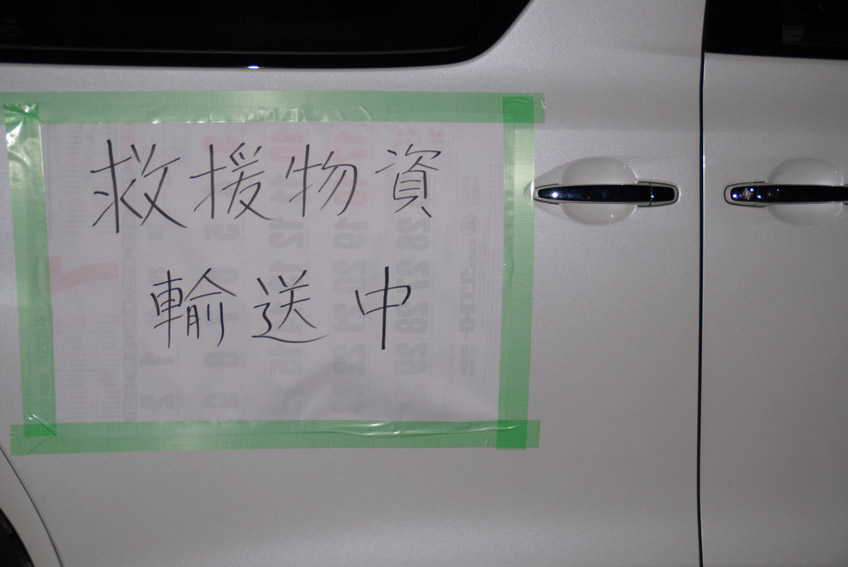 救援物資
輸送中